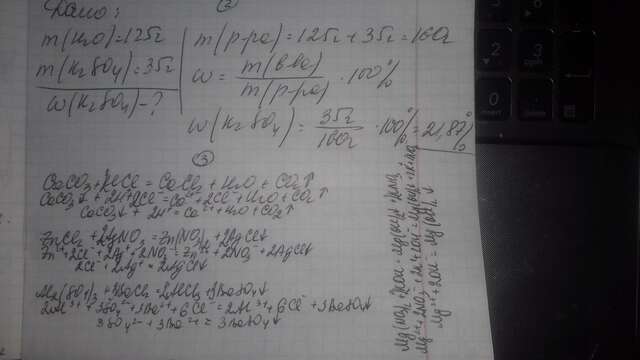 ②
Дано:
m(H2O)=125г
m(K2SO4)=35г
ω(K2SO4)-?
m(р-ра)=125г+35г=160г
ω = m(в-ва) / m(р-ра) · 100%
ω(K2SO4) = 35г / 160г · 100% = 21,87%
③
CaCO3+HCl = CaCl2 + H2O + CO2↑
CaCO3↓ + 2H⁺+2Cl⁻=Ca²⁺+2Cl⁻+H2O+CO2↑
CaCO3↓ + 2H⁺ = Ca²⁺+H2O+CO2↑
ZnCl2 +2AgNO3 = Zn(NO3)2+2AgCl↓
Zn²⁺+2Cl⁻+2Ag⁺+2NO3⁻=Zn²⁺+2NO3⁻+2AgCl↓
2Cl⁻+2Ag⁺=2AgCl↓
Al2(SO4)3 +3BaCl2 = 2AlCl3 +3BaSO4↓
2Al³⁺+3SO4²⁻+3Ba²⁺+6Cl⁻=2Al³⁺+6Cl⁻+3BaSO4↓
3SO4²⁻+3Ba²⁺=3BaSO4↓
Mg²⁺+2OH⁻=Mg(OH)2↓